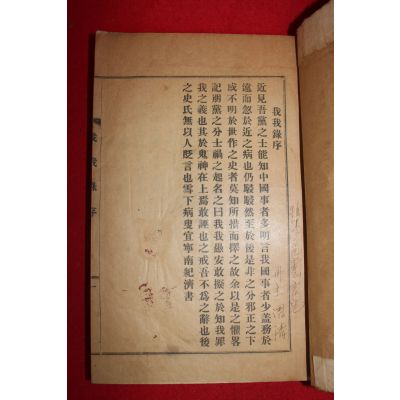 我我錄序
近見吾黨之士能知中國事者多明言我國事者少蓋務於
遠而忽於近之病也仍駸駸然至於後是非之分邪正之下
成不明於世作之史者莫知所措而擇之故余以是之懼畧
記朋黨之分士禍之起名之曰我我愚安敢擬之於知我罪
我之義也其於鬼神在上焉敢誣也之戒吾不爲之辭也後
之史氏無以人貶言也雪下病叟宜寧南紀濟書
我我錄序
一